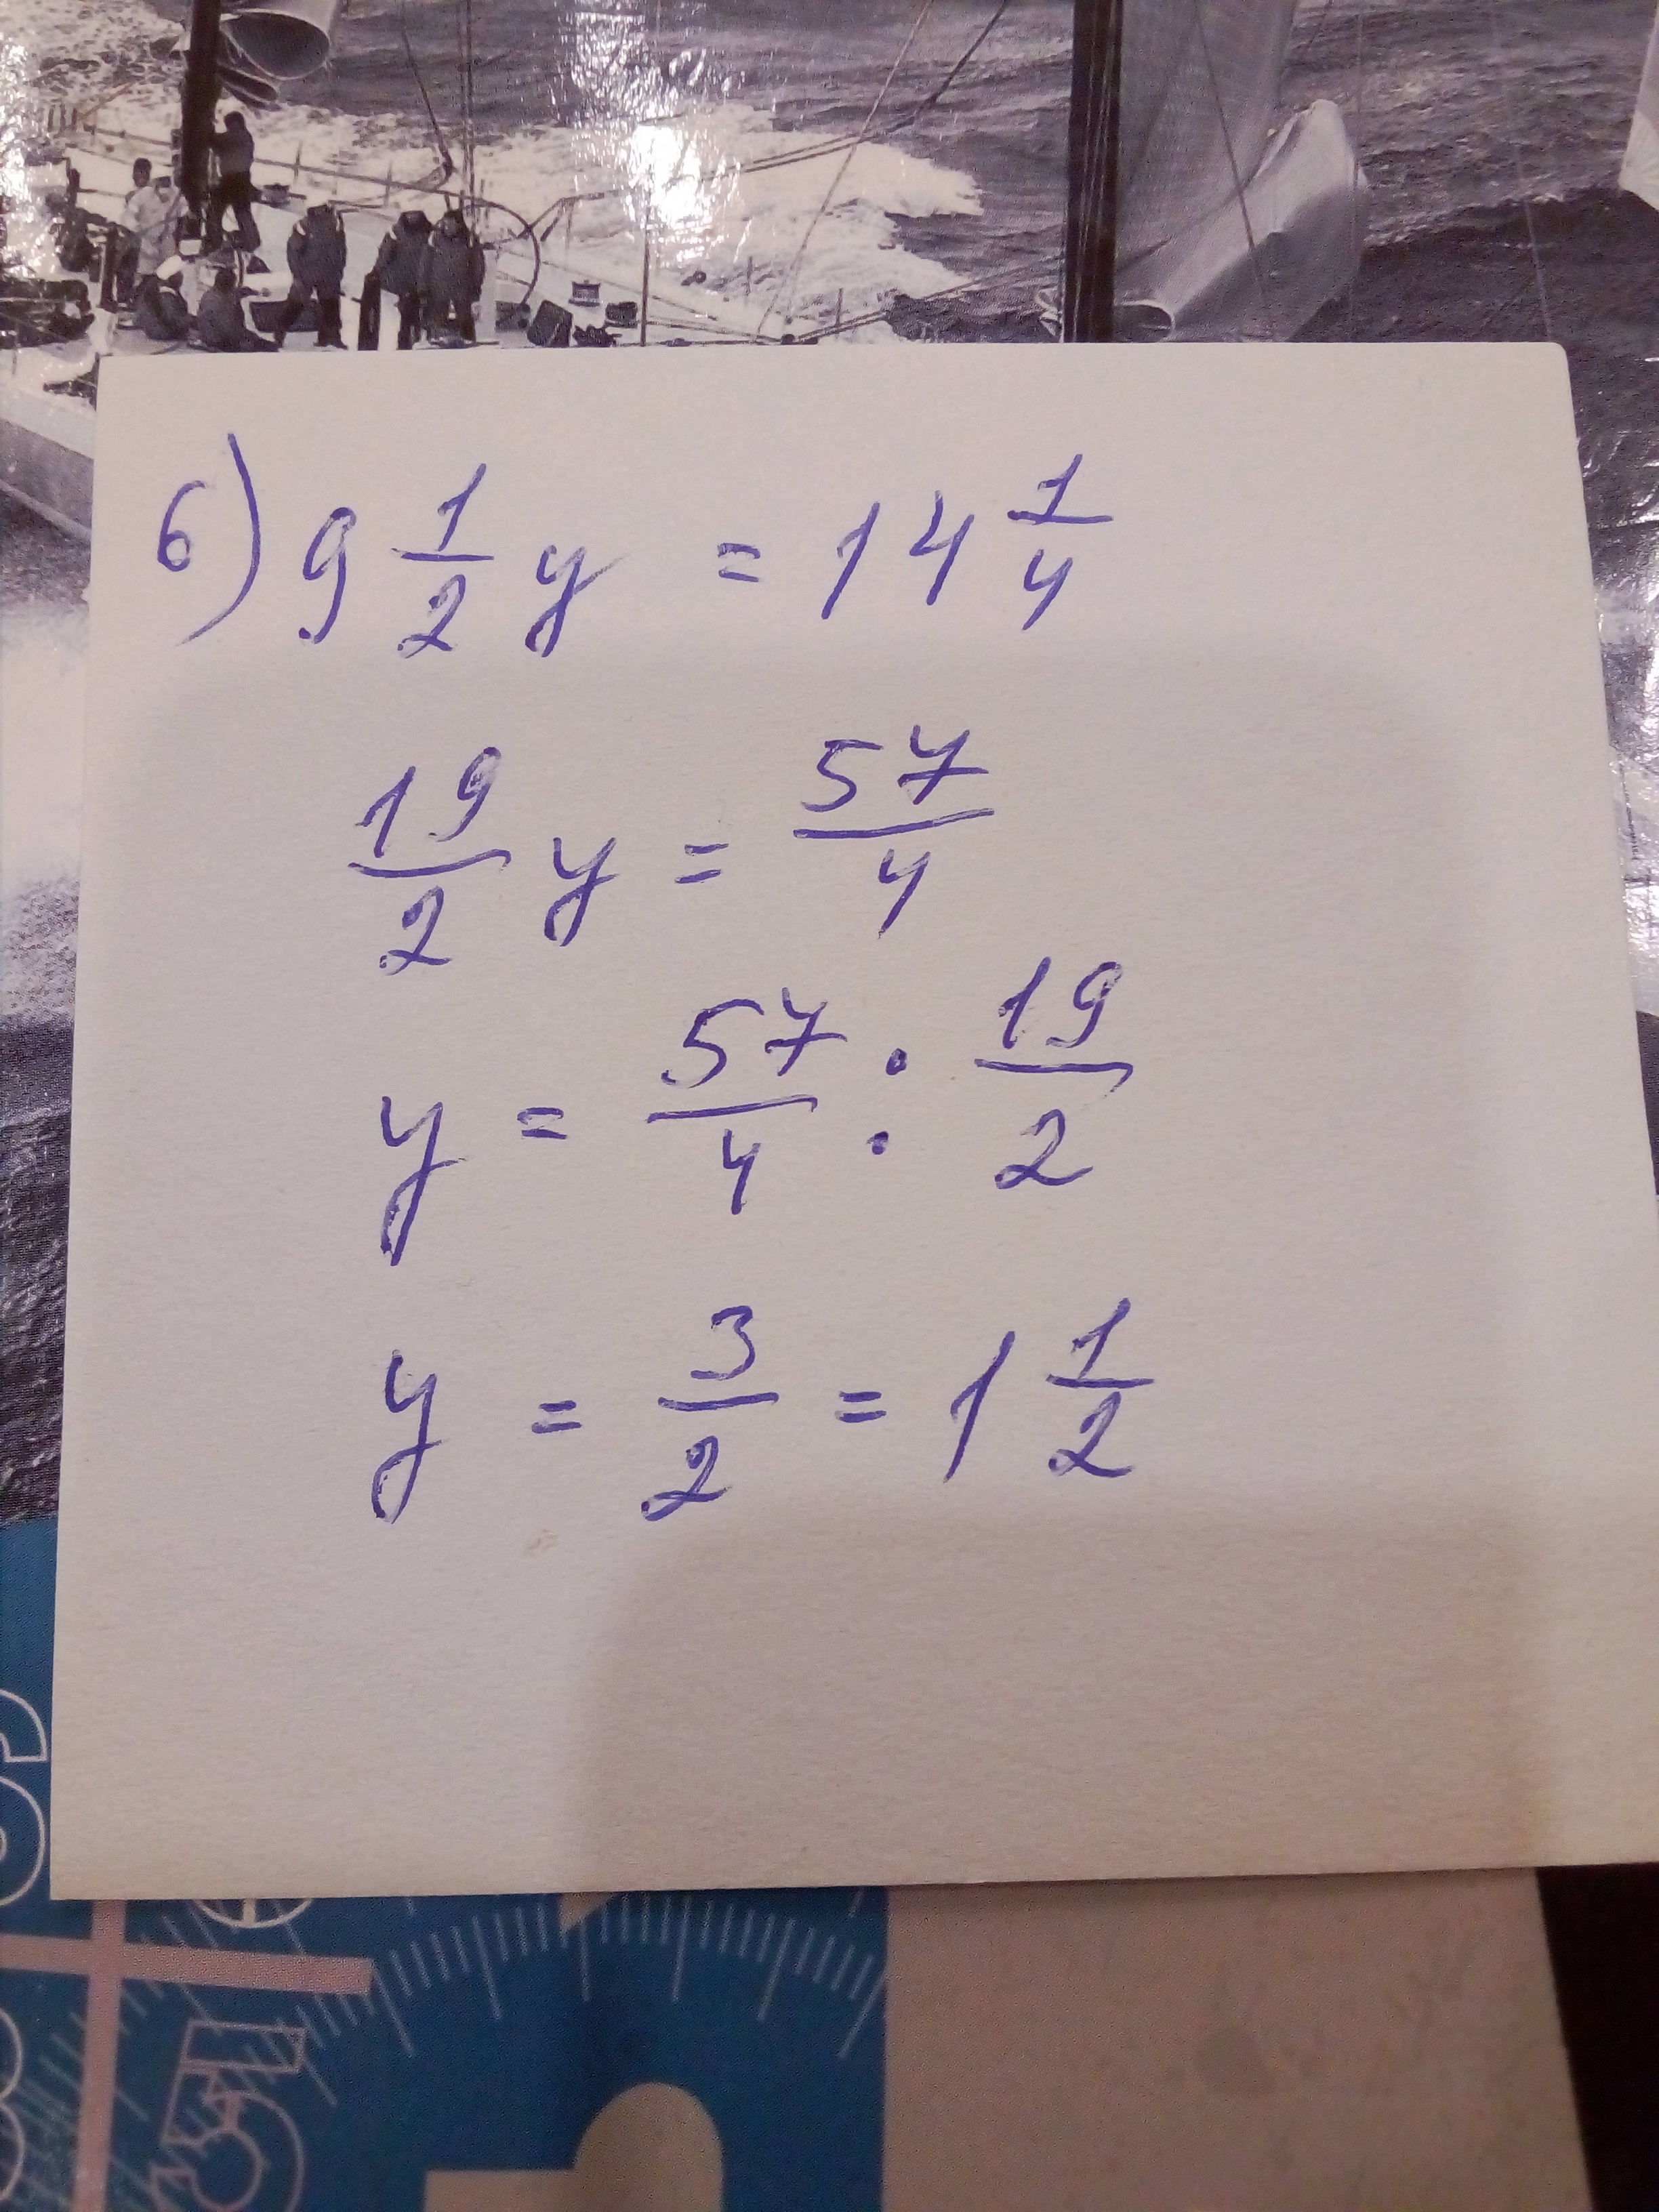 6) 9 1/2 y = 14 1/4
19/2 y = 57/4
y = 57/4 : 19/2
y = 3/2 = 1 1/2